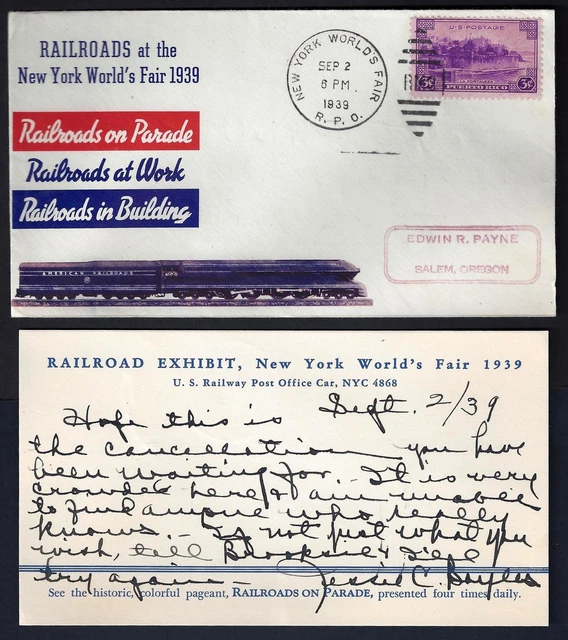 RAILROADS at the
New York World's Fair 1939
Railroads on Parade
Railroads at Work
Railroads in Building
AMERICAN RAILROADS
NEW YORK WORLD'S FAIR
SEP 2
6 PM
1939
R. P. O.
U·S·POSTAGE
3¢ 3¢
PUERTO RICO
EDWIN R. PAYNE
SALEM, OREGON
RAILROAD EXHIBIT, New York World's Fair 1939
U. S. Railway Post Office Car, NYC 4868
Sept. 2/39
Hope this is
the cancellation you have
been waiting for. - It is very
crowded here & am unable
to find anyone who really
knows. - If not just what you
wish, tell & I'll
try again - Jessie C.
See the historic, colorful pageant, RAILROADS ON PARADE, presented four times daily.